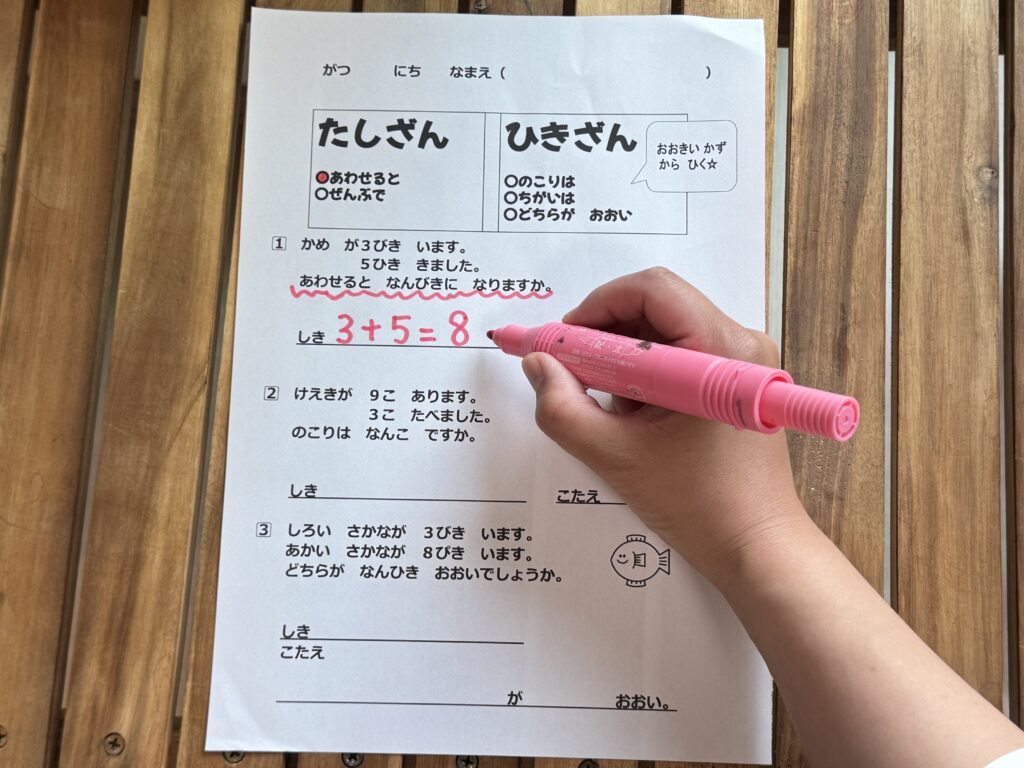 がつ にち なまえ（ ）
たしざん
●あわせると
○ぜんぶで
ひきざん
○のこりは
○ちがいは
○どちらが おおい
おおきい かず
から ひく☆
1 かめ が３びき います。
５ひき きました。
あわせると なんびきに なりますか。
しき 3+5=8
2 けえきが ９こ あります。
３こ たべました。
のこりは なんこ ですか。
しき
こたえ
3 しろい さかなが ３びき います。
あかい さかなが ８びき います。
どちらが なんひき おおいでしょうか。
しき
こたえ
が おおい。